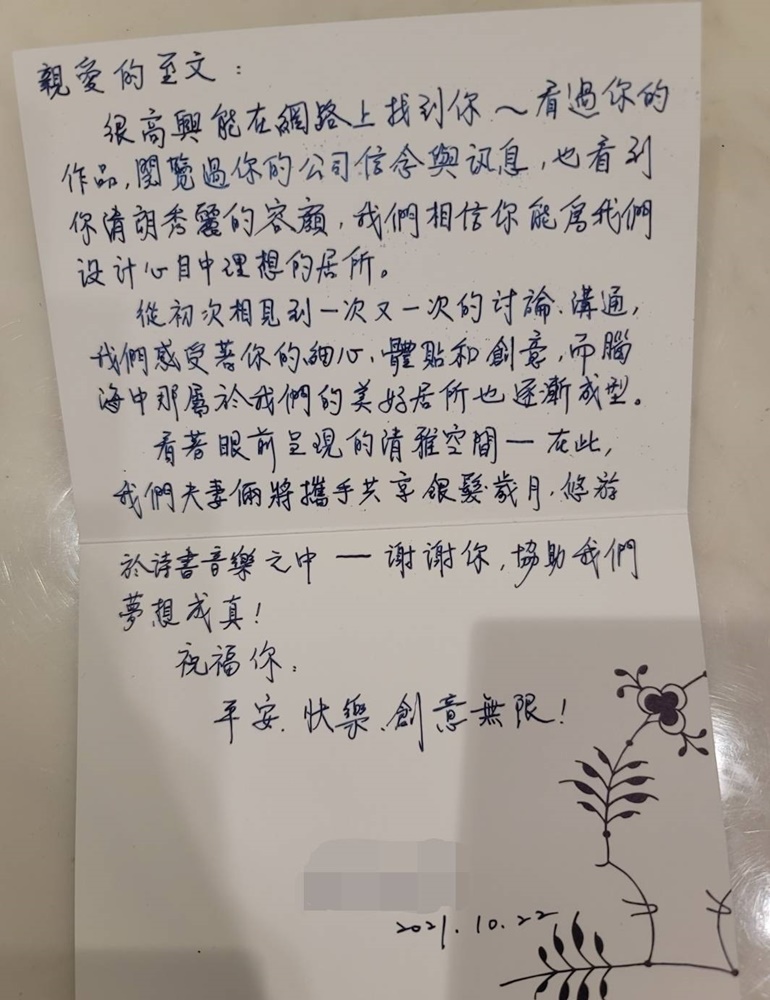 親愛的至文：
很高興能在網路上找到你～看過你的
作品，閱覽過你的公司信念與訊息，也看到
你清朗秀麗的容顏，我們相信你能為我們
設计心目中理想的居所。
從初次相見到一次又一次的討論、溝通，
我們感受著你的細心、體貼和創意，而腦
海中那屬於我們的美好居所也逐漸成型。
看著眼前呈現的清雅空間—在此，
我們夫妻倆將攜手共享銀髮歲月，悠游
於詩書音樂之中—谢谢你，協助我們
夢想成真！
祝福你：
平安、快樂、創意無限！
2021.10.22